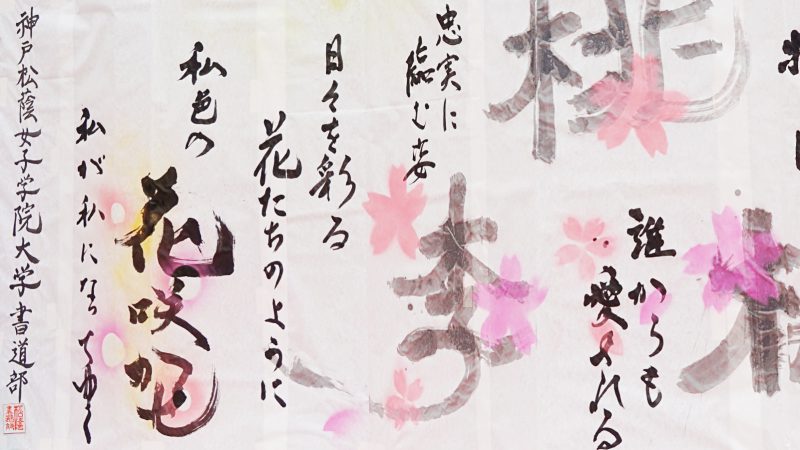 桃
誰からも
愛される
李
忠実に
臨む姿
日々を彩る
花たちのように
私色の
花咲かし
私が私になってゆく
神戸松蔭女子学院大学書道部